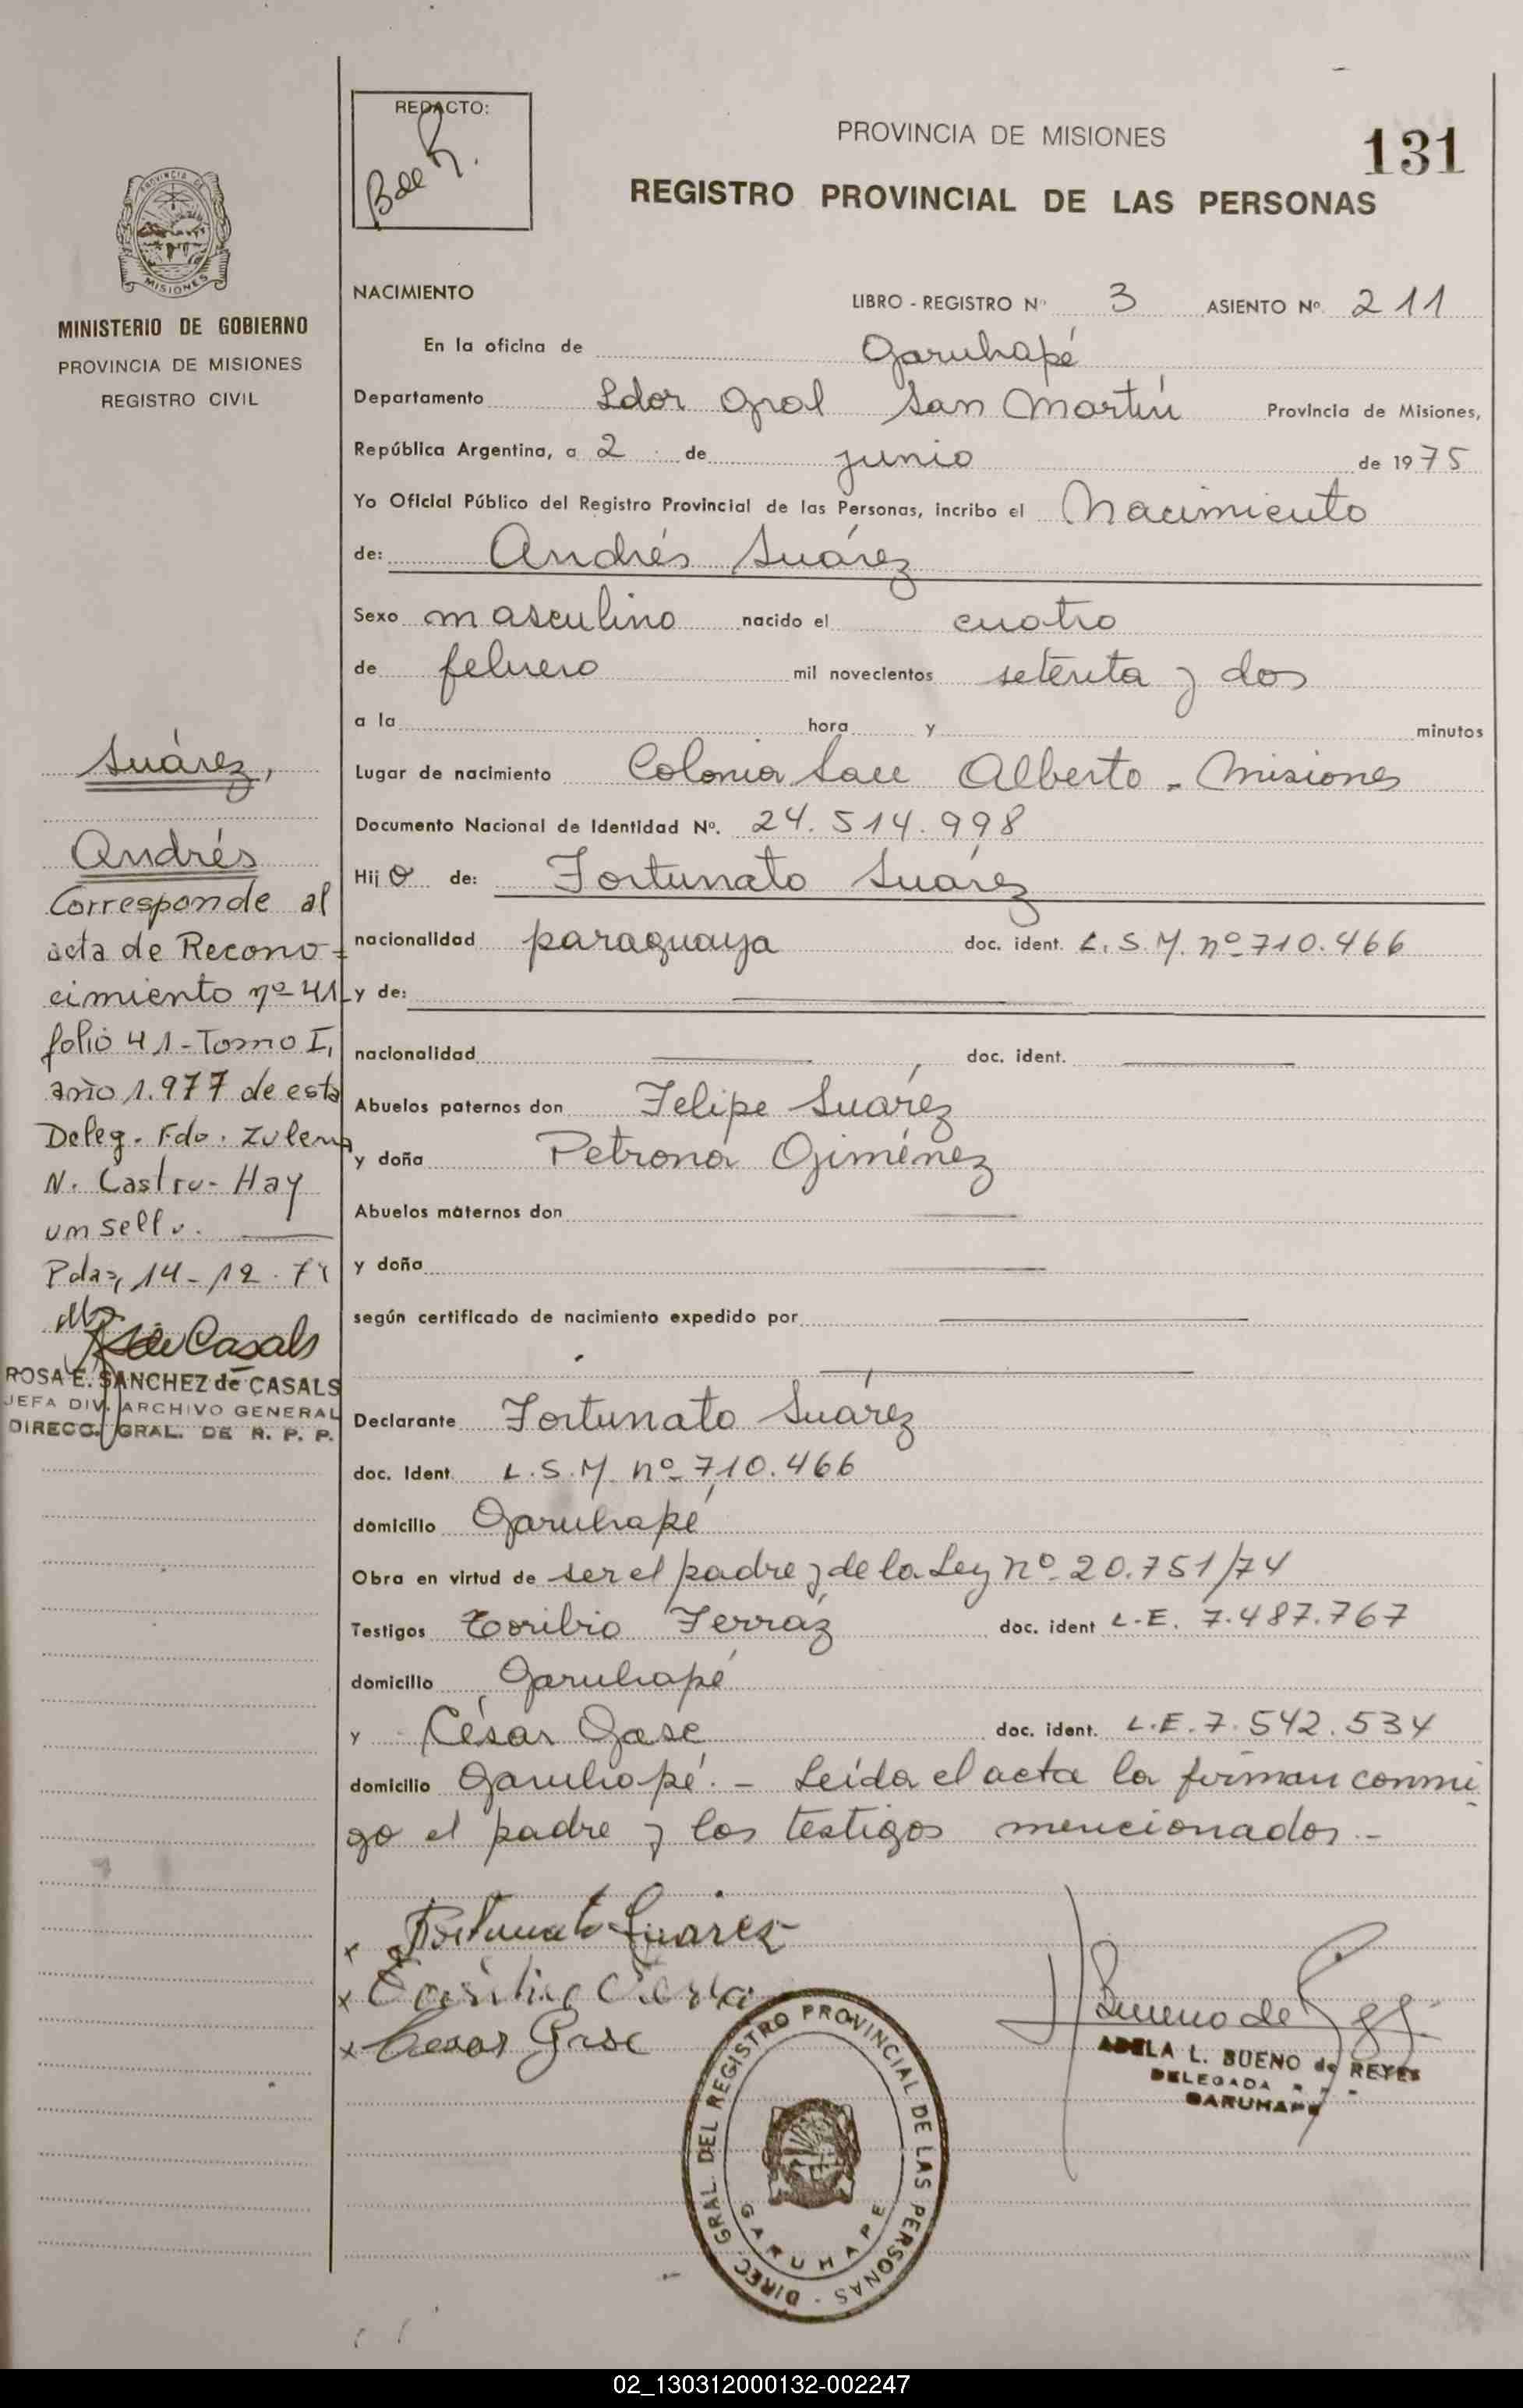 REDACTO:
B de R.
PROVINCIA DE MISIONES
131
REGISTRO PROVINCIAL DE LAS PERSONAS
PROVINCIA DE
MISIONES
MINISTERIO DE GOBIERNO
PROVINCIA DE MISIONES
REGISTRO CIVIL
NACIMIENTO
LIBRO - REGISTRO Nº 3 ASIENTO Nº 211
En la oficina de Garuhapé
Departamento Ldor Gral San Martín Provincia de Misiones,
República Argentina, a 2 de junio de 1975
Yo Oficial Público del Registro Provincial de las Personas, incribo el Nacimiento
de: Andrés Suárez
Sexo masculino nacido el cuatro
de febrero mil novecientos setenta y dos
a la hora y minutos
Lugar de nacimiento Colonia San Alberto - Misiones
Documento Nacional de Identidad Nº. 24.514.998
Hijo de: Fortunato Suárez
nacionalidad paraguaya doc. ident. L.S.M. nº 710.466
y de:
nacionalidad doc. ident.
Abuelos paternos don Felipe Suárez
y doña Petrona Giménez
Abuelos maternos don
y doña
según certificado de nacimiento expedido por
Declarante Fortunato Suárez
doc. Ident. L.S.M. nº 710.466
domicilio Garuhapé
Obra en virtud de ser el padre y de la Ley nº 20.751/74
Testigos Toribio Ferraz doc. ident L.E. 7.487.767
domicilio Garuhapé
y César Gase doc. ident. L.E. 7.542.534
domicilio Garuhapé. - Leída el acta la firman conmi
go el padre y los testigos mencionados.-
Suárez,
Andrés
Corresponde al
acta de Recono=
cimiento nº 41
folio 41-Tomo I,
año 1.977 de esta
Deleg. Fdo. Zulema
N. Castro- Hay
un sello.
Pdas, 14-12-
de Casals
ROSA E. SANCHEZ de CASALS
JEFA DIV. ARCHIVO GENERAL
DIRECC. GRAL. DE R. P. P.
x Fortunato Suarez
x
x Cesar Gase
Bueno de
ADELA L. BUENO de REYES
DELEGADA
GARUHAPE
DIREC. GRAL. DEL REGISTRO PROVINCIAL DE LAS PERSONAS -
GARUHAPE
02_130312000132-002247